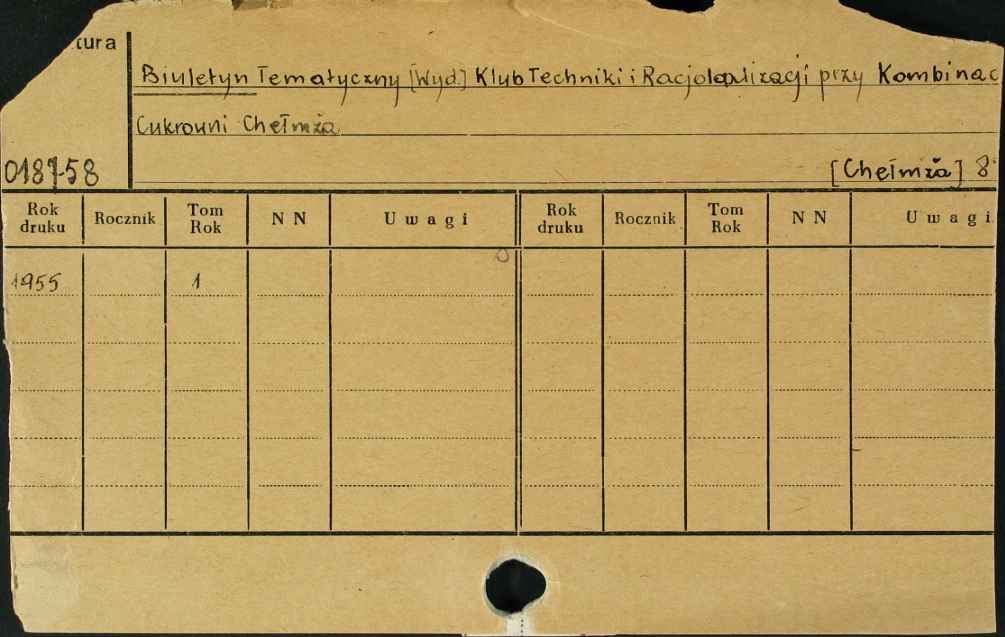 tura
Biuletyn Tematyczny [Wyd.] Klub Techniki i Racjolalizacji przy Kombinac
Cukrowni Chełmża
018758
[Chełmża] 8°
Rok druku Rocznik Tom Rok N N Uwagi Rok druku Rocznik Tom Rok N N Uwagi
1955 1